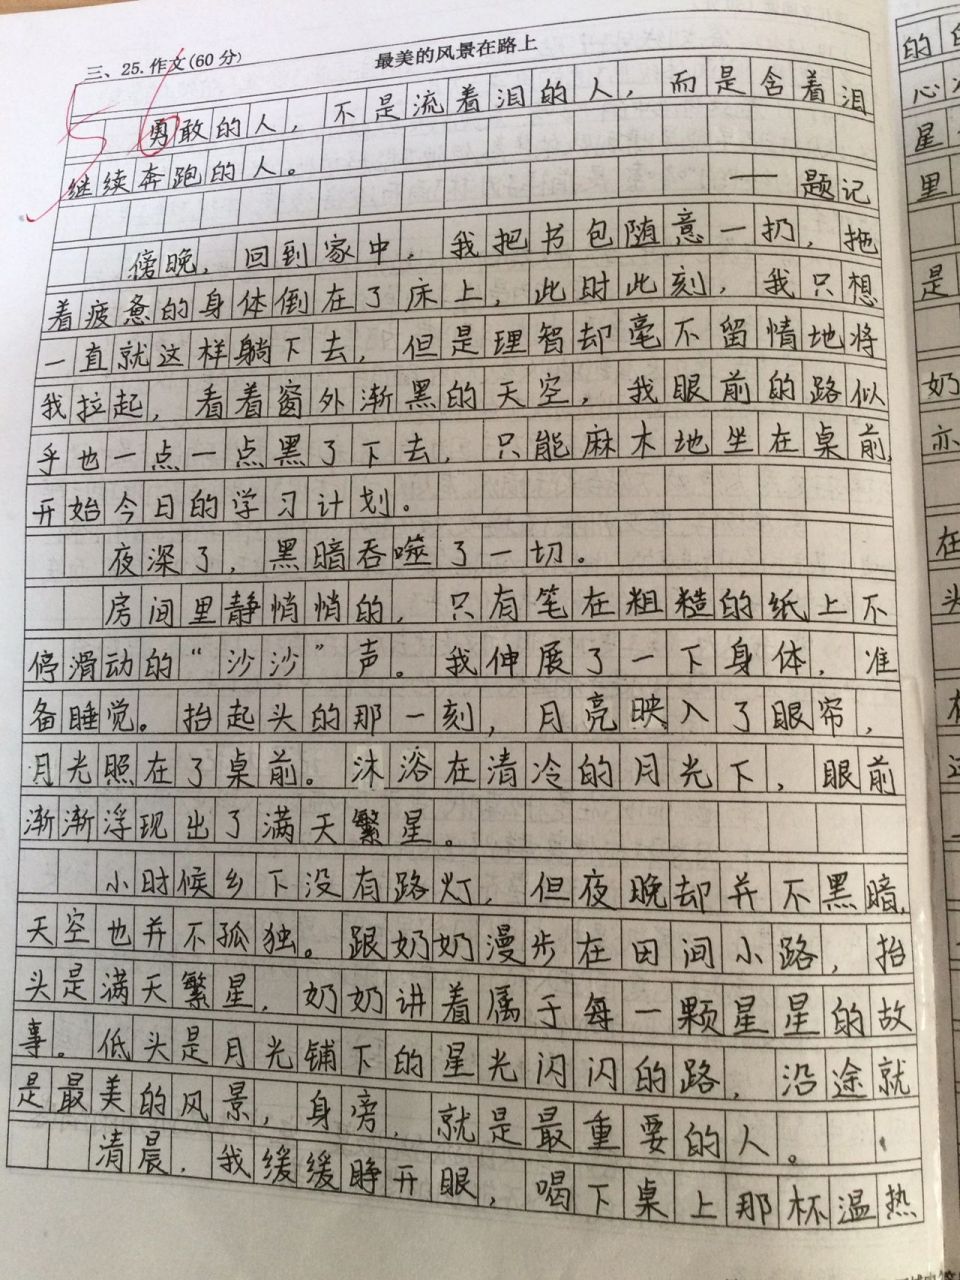 三、25.作文(60分) 最美的风景在路上
56
勇敢的人，不是流着泪的人，而是含着泪
继续奔跑的人。
——题记
傍晚，回到家中，我把书包随意一扔，拖
着疲惫的身体倒在了床上，此时此刻，我只想
一直就这样躺下去，但是理智却毫不留情地将
我拉起，看着窗外渐黑的天空，我眼前的路似
乎也一点一点黑了下去，只能麻木地坐在桌前，
开始今日的学习计划。
夜深了，黑暗吞噬了一切。
房间里静悄悄的，只有笔在粗糙的纸上不
停滑动的“沙沙”声。我伸展了一下身体，准
备睡觉。抬起头的那一刻，月亮映入了眼帘，
月光照在了桌前。沐浴在清冷的月光下，眼前
渐渐浮现出了满天繁星。
小时候乡下没有路灯，但夜晚却并不黑暗，
天空也并不孤独。跟奶奶漫步在田间小路，抬
头是满天繁星，奶奶讲着属于每一颗星星的故
事。低头是月光铺下的星光闪闪的路，沿途就
是最美的风景，身旁，就是最重要的人。
清晨，我缓缓睁开眼，喝下桌上那杯温热
的
心
星
里
是
奶
亦
在
头